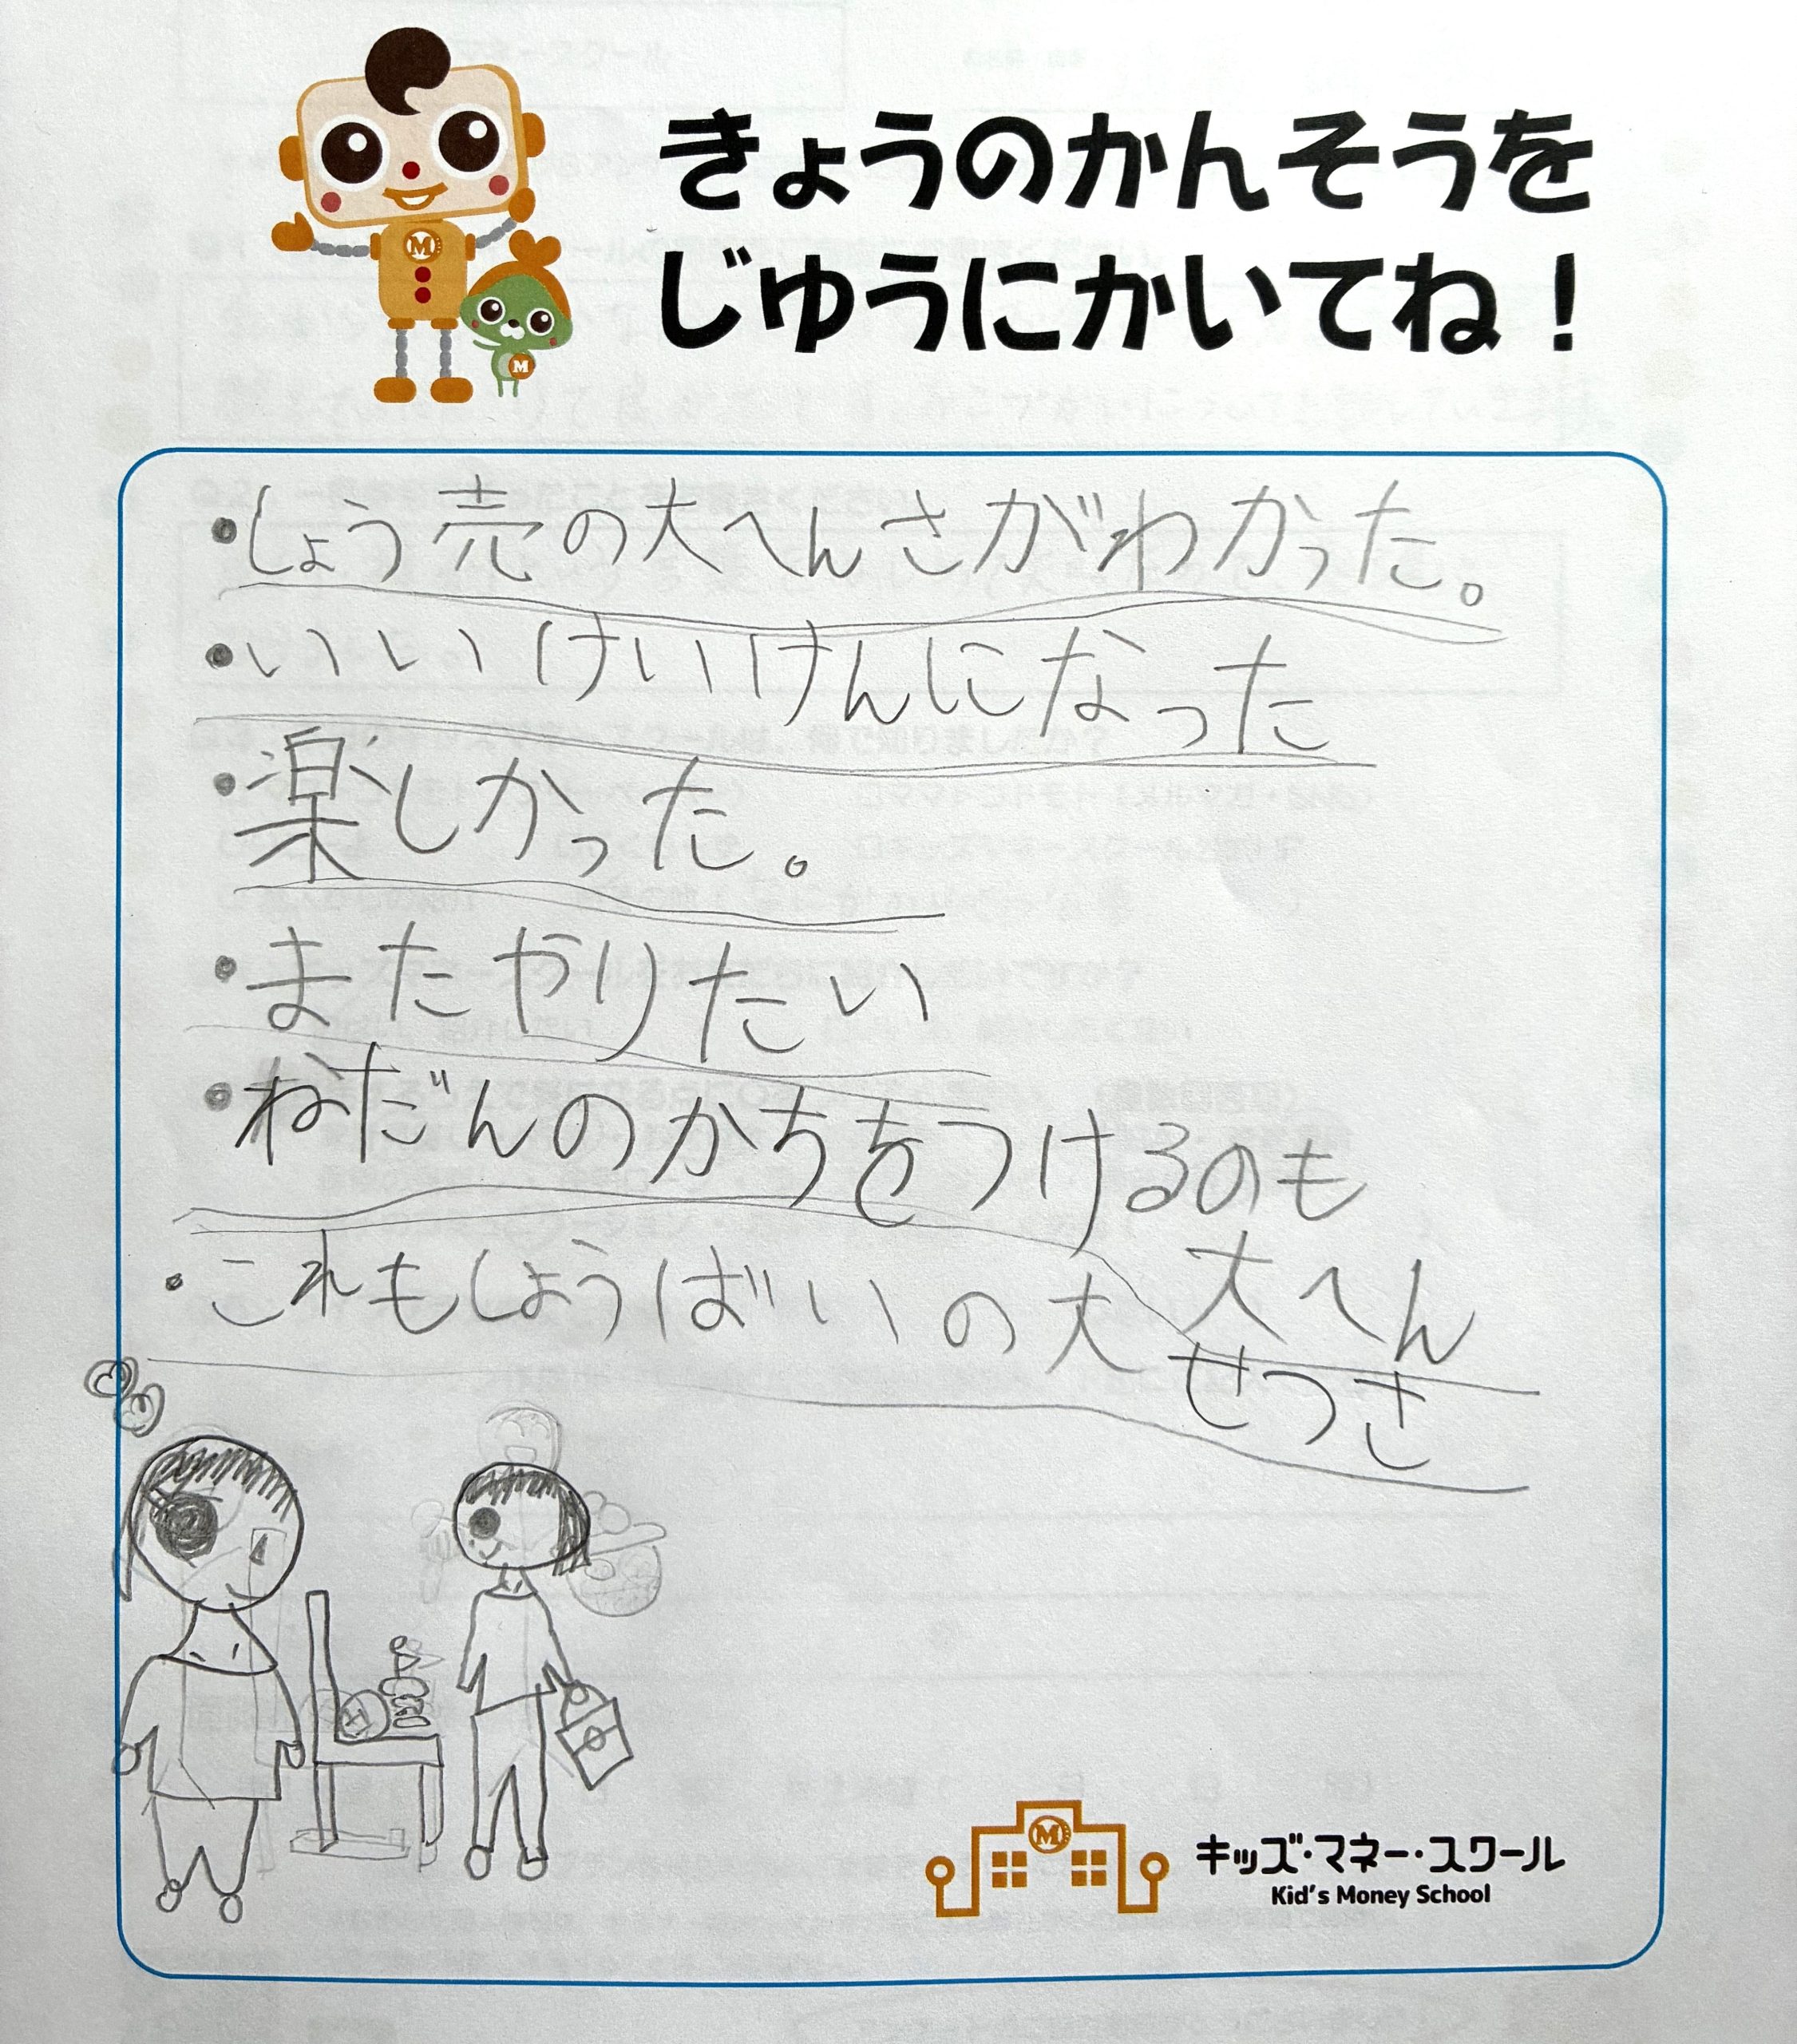 きょうのかんそうを
じゆうにかいてね！
・しょう売の大へんさがわかった。
・いいけいけんになった
・楽しかった。
・またやりたい
・ねだんのかちをつけるのも
大へん
・これもしょうばいの大
せつさ
M
M
M
キッズ・マネー・スクール
Kid's Money School